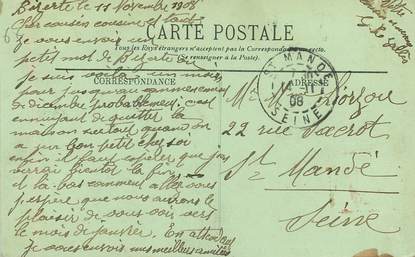 Bizerte le 11 Novembre 1908
Cher cousin cousine et
Je vous envoi un
petit mot de Bizerte
Je suis un mois
pour jusqu'au commencement
de décembre probablement. c'est
ennuyant de quitter la
maison surtout quand on
a un bon petit chez soi
enfin il faut espérer que j'en
verrai bientôt la fin
et la bas comment allez vous
j'espère que nous aurons le
plaisir de vous voir vers
le mois de janvier. En attendant
Je vous envoi mes meilleurs amitiés
CARTE POSTALE
Tous les Pays étrangers n'acceptent pas la Correspondance au recto.
(Se renseigner à la Poste).
CORRESPONDANCE
ADRESSE
ST MANDÉ
08
SEINE
22 rue
St Mandé
Seine